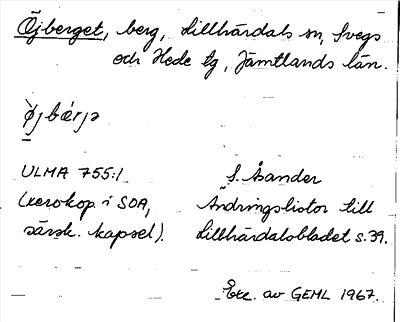 Öjberget, berg, Lillhärdals sn, Svegs
och Hede tg, Jämtlands län.
ø̀jbærjə
ULMA 755:1 S. Åsander
(xerokop. i SOA, Ändringslistor till
särsk. kapsel). Lillhärdalsbladet s. 39.
Exc. av GEHL 1967.